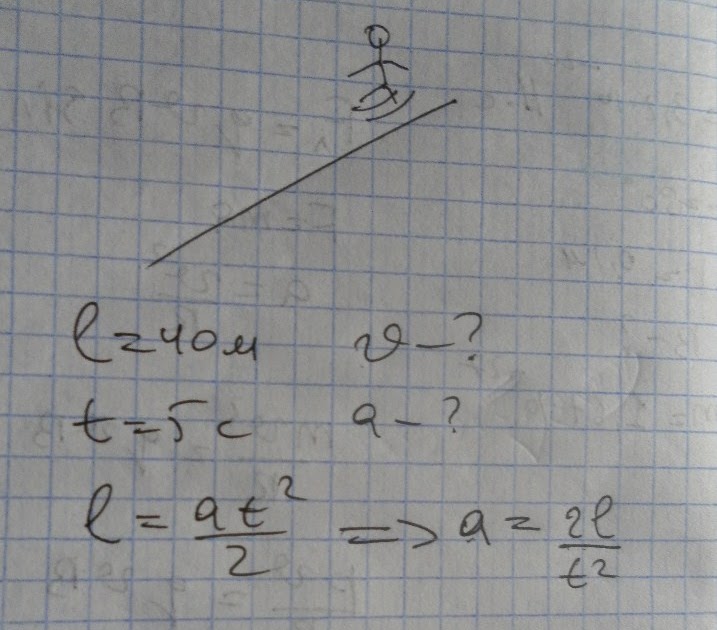 l = 40 м v - ?
t = 5 с a - ?
l = at²/2 => a = 2l/t²